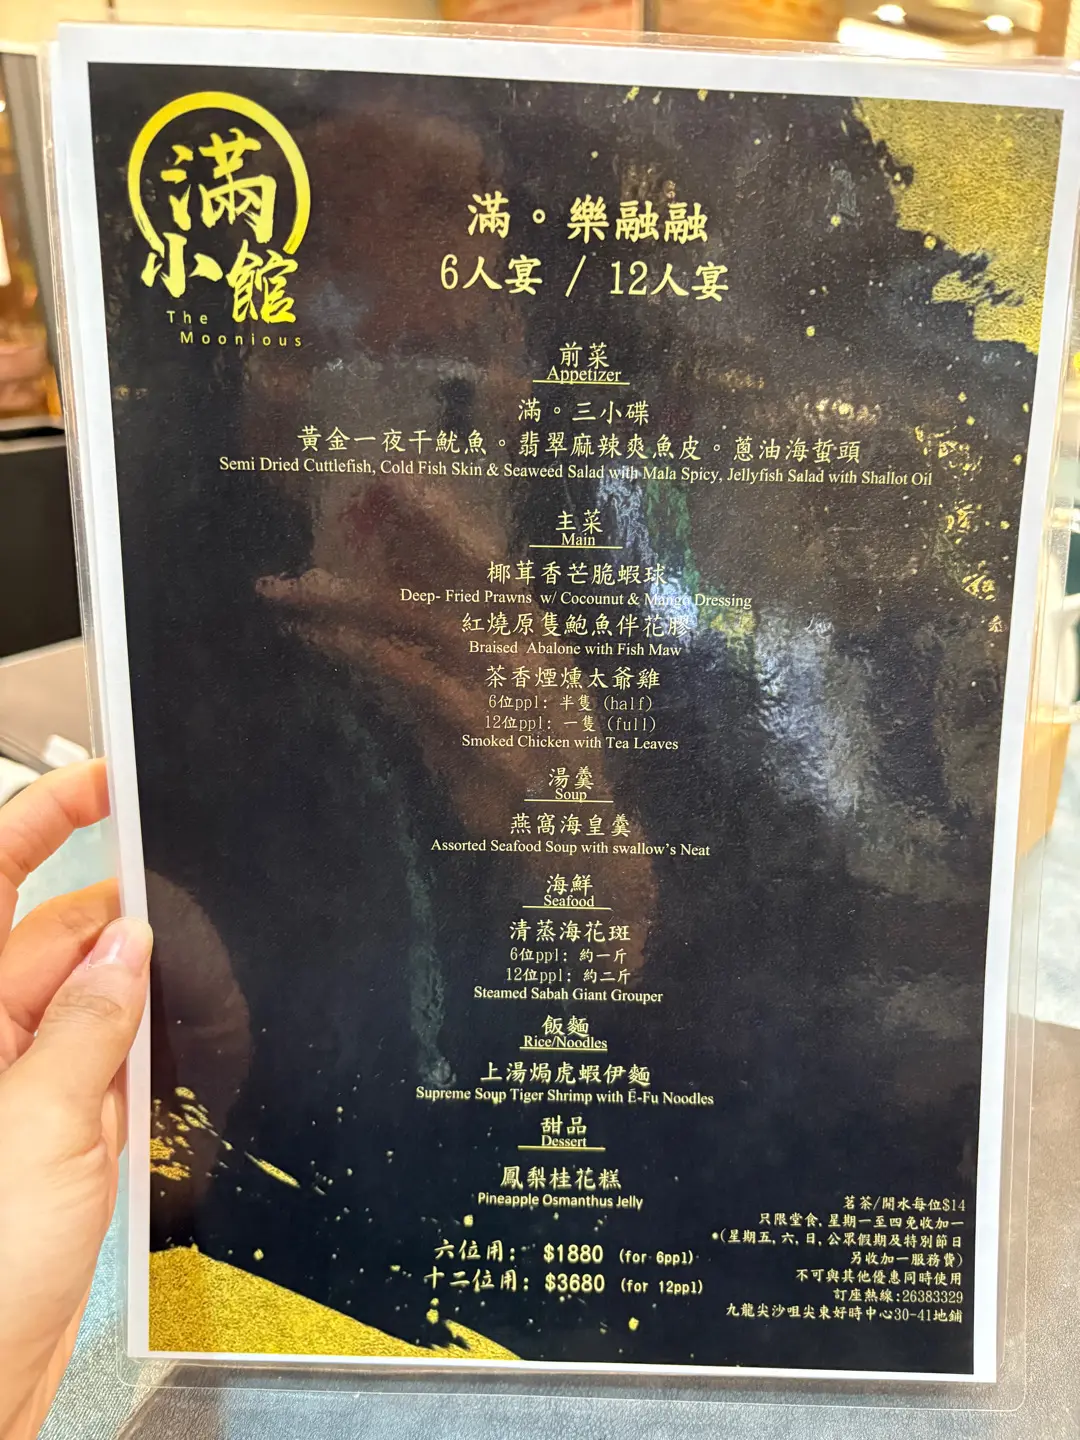 滿
小館
The
Moonious
滿。樂融融
6人宴 / 12人宴
前菜
Appetizer
滿。三小碟
黃金一夜干魷魚。翡翠麻辣爽魚皮。蔥油海蜇頭
Semi Dried Cuttlefish, Cold Fish Skin & Seaweed Salad with Mala Spicy, Jellyfish Salad with Shallot Oil
主菜
Main
椰茸香芒脆蝦球
Deep- Fried Prawns w/ Cocounut & Mango Dressing
紅燒原隻鮑魚伴花膠
Braised Abalone with Fish Maw
茶香煙燻太爺雞
6位ppl: 半隻 (half)
12位ppl: 一隻 (full)
Smoked Chicken with Tea Leaves
湯羹
Soup
燕窩海皇羹
Assorted Seafood Soup with swallow's Neat
海鮮
Seafood
清蒸海花斑
6位ppl: 約一斤
12位ppl: 約二斤
Steamed Sabah Giant Grouper
飯麵
Rice/Noodles
上湯焗虎蝦伊麵
Supreme Soup Tiger Shrimp with E-Fu Noodles
甜品
Dessert
鳳梨桂花糕
Pineapple Osmanthus Jelly
六位用: $1880 (for 6ppl)
十二位用: $3680 (for 12ppl)
茗茶/開水每位$14
只限堂食, 星期一至四免收加一
*(星期五, 六, 日, 公眾假期及特別節日
另收加一服務費)
不可與其他優惠同時使用
訂座熱線:26383329
九龍尖沙咀尖東好時中心30-41地鋪